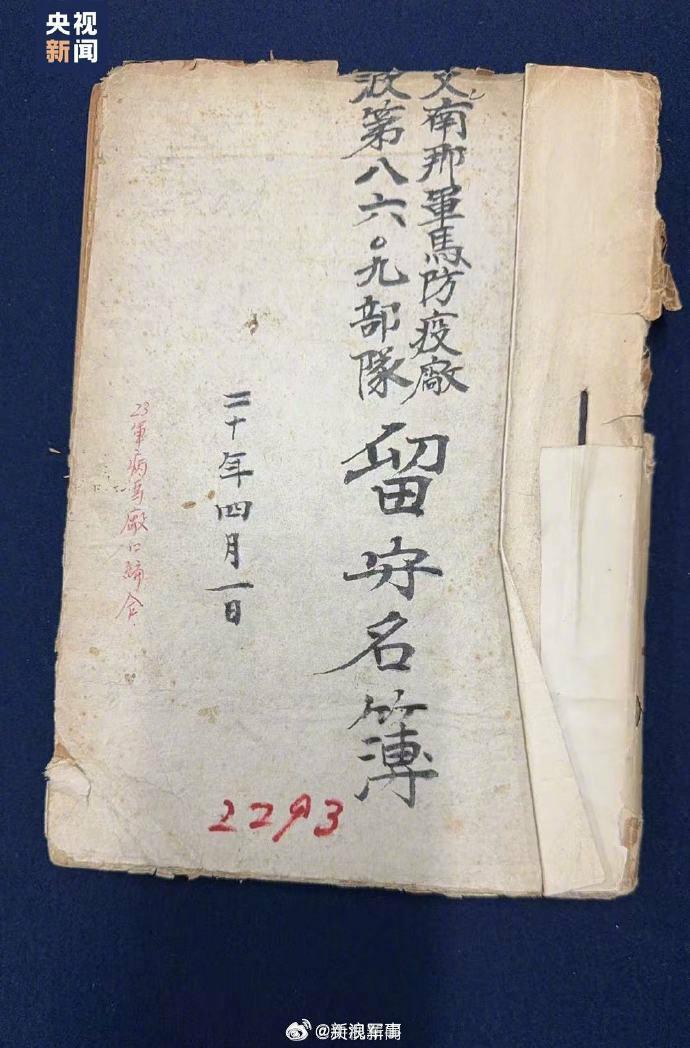 央视
新闻
支南那軍馬防疫廠
波第八六〇九部隊
留守名簿
二十年四月一日
23軍病馬廠に編合
2293